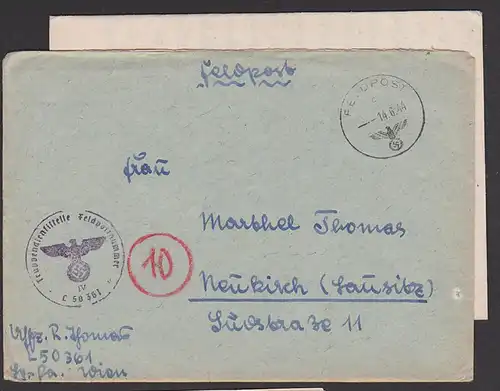 Feldpost
FELDPOST
c
-14.6.44
Frau
Marthel Thomas
Neukirch (Lausitz)
Südstraße 11
Truppendienststelle Feldpostnummer
C 50 361
10
Uffz. R. Thomas
-50361
Wien